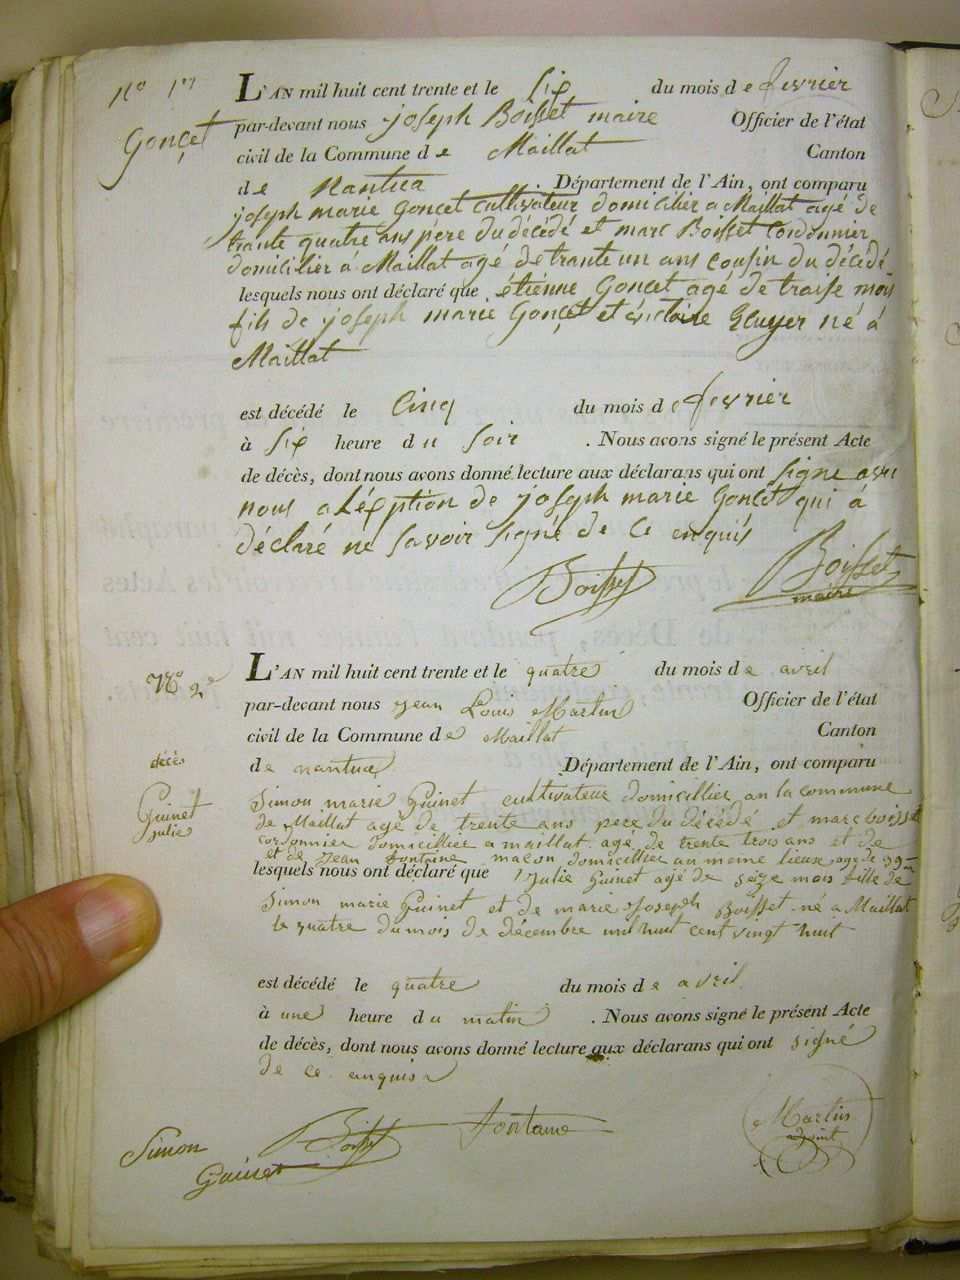 N° 1er
Gonçet
L'AN mil huit cent trente et le six du mois de fevrier
par-devant nous joseph Boisset maire Officier de l'état
civil de la Commune de Maillat Canton
de Nantua . Département de l'Ain, ont comparu
joseph marie Goncet cultivateur domicilier a Maillat agé de
trante quatre ans père du décédé et marc Boisset Cordonnier
domicilier à Maillat agé de trante un ans cousin du décédé
lesquels nous ont déclaré que étienne Goncet agé de traise mois
fils de joseph marie Gonçet et Ecuyer né à
Maillat
est décédé le Cinq du mois de fevrier
à six heure du soir . Nous avons signé le présent Acte
de décès, dont nous avons donné lecture aux déclarans qui ont signe avec
nous a joseph marie Goncet qui à
déclaré ne savoir signé de ce enquis
Boisset Boisset
maire
N° 2e
décès
Guinet
julie
L'AN mil huit cent trente et le quatre du mois de avril
par-devant nous jean Louis Martin Officier de l'état
civil de la Commune de Maillat Canton
de nantua Département de l'Ain, ont comparu
Simon marie Guinet cultivateur domicillier an la commune
de Maillat agé de trente ans pere du décédé et marc boisset
cordonnier domicillier a maillat age de trente trois ans et de
et de jean fontaine maçon domicillier au meme lieux, age de 39 ans
lesquels nous ont déclaré que Julie Guinet agé de seize mois fille de
Simon marie Guinet et de marie Joseph Boisset né a Maillat
le quatre du mois de décembre mil huit cent vingt huit
est décédé le quatre du mois de avril
à une heure du matin . Nous avons signé le présent Acte
de décès, dont nous avons donné lecture aux déclarans qui ont signé
de ce anquis
Simon Guinet Boisset fontaine Martin
adjoint